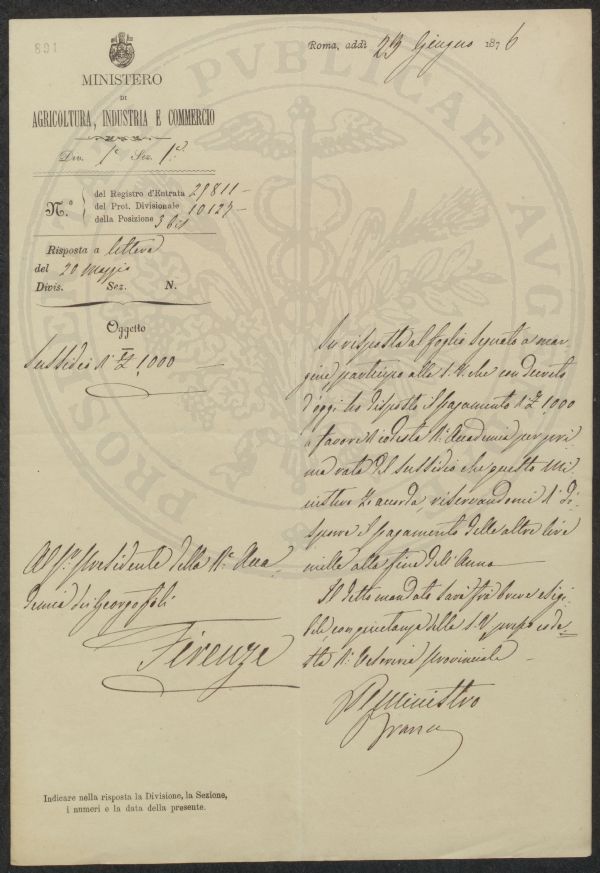 891
Roma, addì 23 Giugno 1876
MINISTERO
DI
AGRICOLTURA, INDUSTRIA E COMMERCIO
Div. 1ª Sez. 1ª
N.º
del Registro d'Entrata 29811
del Prot. Divisionale 10127
della Posizione 3 bis
Risposta a lettera
del 20 Maggio
Divis. Sez. N.
Oggetto
Sussidio di £ 1,000
In risposta al foglio segnato a mar-
gine partecipo alla S.V. che con decreto
d'oggi ho disposto il pagamento di £ 1,000
a favore di codesta R. Accademia per pri-
ma rata del sussidio che questo Mi-
nistero le accorda riservandomi di di-
sporre il pagamento delle altre lire
mille alla fine dell'Anno
Il detto mandato sarà fra breve esigi-
bile con quietanza della S.V. presso code-
sta R. Tesoreria Provinciale
Al Sig. Presidente della R. Acca-
demia dei Georgofili
Firenze
Il Ministro
Indicare nella risposta la Divisione, la Sezione,
i numeri e la data della presente.
PVBLICAE
AVG
PROSPERITATI